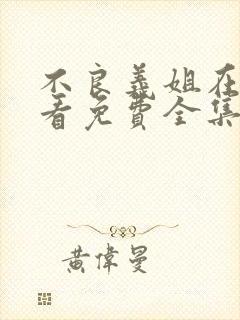 不良義姐在
看免費全集
黃偉曼